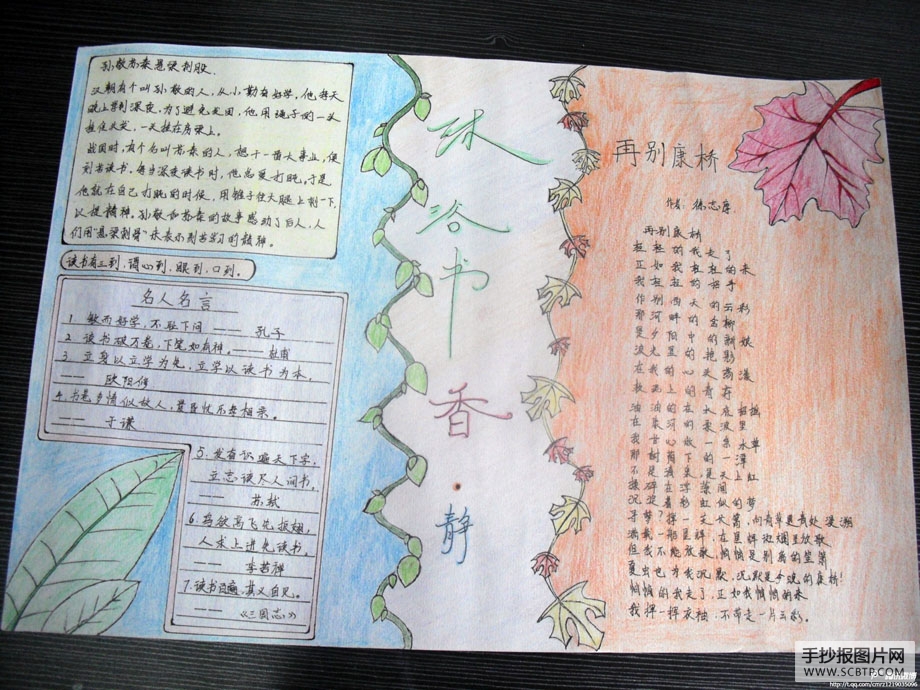 孙敬苏秦悬梁刺股
汉朝有个叫孙敬的人，从小勤奋好学，他每天
晚上学到深夜，为了避免发困，他用绳子的一头
拴住头发，一头拴在房梁上。
战国时，有个名叫苏秦的人，想干一番大事业，便
刻苦读书，每当深夜读书时，他总爱打盹。于是
他就在自己打盹的时候，用锥子往大腿上刺一下，
以提精神。孙敬和苏秦的故事感动了后人，人
们用"悬梁刺骨"来表示刻苦学习的精神。
读书有三到，谓心到，眼到，口到。
名人名言
1. 敏而好学，不耻下问 —— 孔子
2 读书破万卷，下笔如有神。—— 杜甫
3 立身以立学为先，立学以读书为本。
—— 欧阳修
4. 书卷多情似故人，晨昏忧乐每相亲。
—— 于谦
5. 发奋识遍天下字，
立志读尽人间书。
—— 苏轼
6. 鸟欲高飞先振翅，
人求上进先读书。
—— 李若禅
7. 读书百遍，其义自见。
—— 《三国志》
沐
浴
书
香
·
静
再别康桥
作者：徐志摩
再别康桥
轻轻的我走了
正如我轻轻的来
我轻轻的招手
作别西天的云彩
那河畔的金柳
是夕阳中的新娘
波光里的艳影
在我的心头荡漾
软泥上的青荇
油油的在水底招摇
在康河的柔波里
我甘心做一条水草
那树荫下的一潭
不是清泉，是天上虹
揉碎在浮藻间
沉淀着彩虹似的梦
寻梦？撑一支长篙，向青草更青处漫溯
满载一船星辉，在星辉斑斓里放歌
但我不能放歌，悄悄是别离的笙箫
夏虫也为我沉默，沉默是今晚的康桥！
悄悄的我走了，正如我悄悄的来
我挥一挥衣袖，不带走一片云彩。
手抄报图片网
WWW.SCBTP.COM
http://t.qq.com/cmrz3219035096